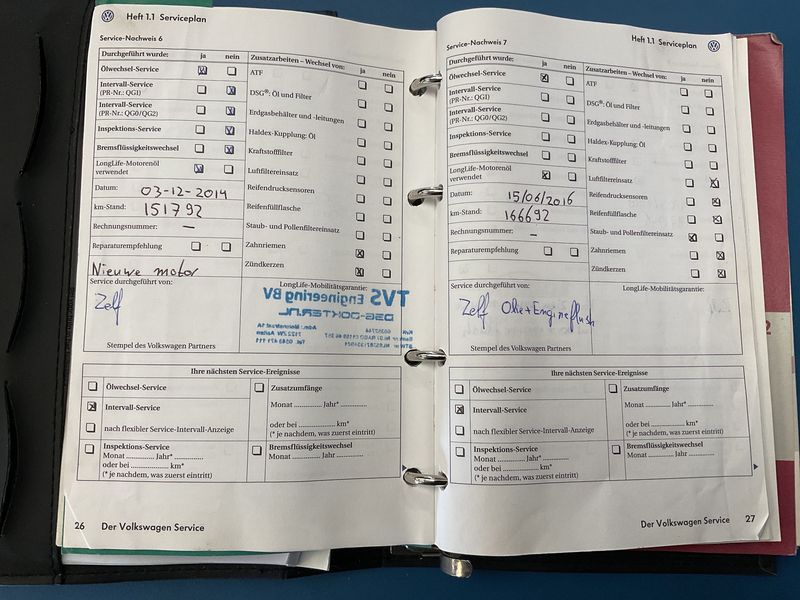 Heft 1.1 Serviceplan
Service-Nachweis 6
Durchgeführt wurde: ja nein
Ölwechsel-Service
Intervall-Service
(PR-Nr.: QG1)
Intervall-Service
(PR-Nr.: QG0/QG2)
Inspektions-Service
Bremsflüssigkeitswechsel
LongLife-Motorenöl
verwendet
Datum: 03-12-2014
km-Stand: 151792
Rechnungsnummer: –
Reparaturempfehlung
Nieuwe motor
Service durchgeführt von:
Zelf
Stempel des Volkswagen Partners
Zusatzarbeiten – Wechsel von: ja nein
ATF
DSG®: Öl und Filter
Erdgasbehälter und -leitungen
Haldex-Kupplung: Öl
Kraftstofffilter
Luftfiltereinsatz
Reifendrucksensoren
Reifenfüllflasche
Staub- und Pollenfiltereinsatz
Zahnriemen
Zündkerzen
LongLife-Mobilitätsgarantie:
TVS Engineering BV
DSG-DOKTER.NL
Ihre nächsten Service-Ereignisse
Ölwechsel-Service
Intervall-Service
nach flexibler Service-Intervall-Anzeige
Inspektions-Service
Monat ............. Jahr* .............
oder bei ............. km*
(* je nachdem, was zuerst eintritt)
Zusatzumfänge
Monat ............. Jahr* .............
oder bei ............. km*
(* je nachdem, was zuerst eintritt)
Bremsflüssigkeitswechsel
Monat ............. Jahr .............
26 Der Volkswagen Service
Heft 1.1 Serviceplan
Service-Nachweis 7
Durchgeführt wurde: ja nein
Ölwechsel-Service
Intervall-Service
(PR-Nr.: QG1)
Intervall-Service
(PR-Nr.: QG0/QG2)
Inspektions-Service
Bremsflüssigkeitswechsel
LongLife-Motorenöl
verwendet
Datum: 15/06/2016
km-Stand: 166692
Rechnungsnummer: –
Reparaturempfehlung
Service durchgeführt von:
Zelf Olie+Engineflush
Stempel des Volkswagen Partners
Zusatzarbeiten – Wechsel von: ja nein
ATF
DSG®: Öl und Filter
Erdgasbehälter und -leitungen
Haldex-Kupplung: Öl
Kraftstofffilter
Luftfiltereinsatz
Reifendrucksensoren
Reifenfüllflasche
Staub- und Pollenfiltereinsatz
Zahnriemen
Zündkerzen
LongLife-Mobilitätsgarantie:
Ihre nächsten Service-Ereignisse
Ölwechsel-Service
Intervall-Service
nach flexibler Service-Intervall-Anzeige
Inspektions-Service
Monat ............. Jahr* .............
oder bei ............. km*
(* je nachdem, was zuerst eintritt)
Zusatzumfänge
Monat ............. Jahr* .............
oder bei ............. km*
(* je nachdem, was zuerst eintritt)
Bremsflüssigkeitswechsel
Monat ............. Jahr .............
Der Volkswagen Service 27